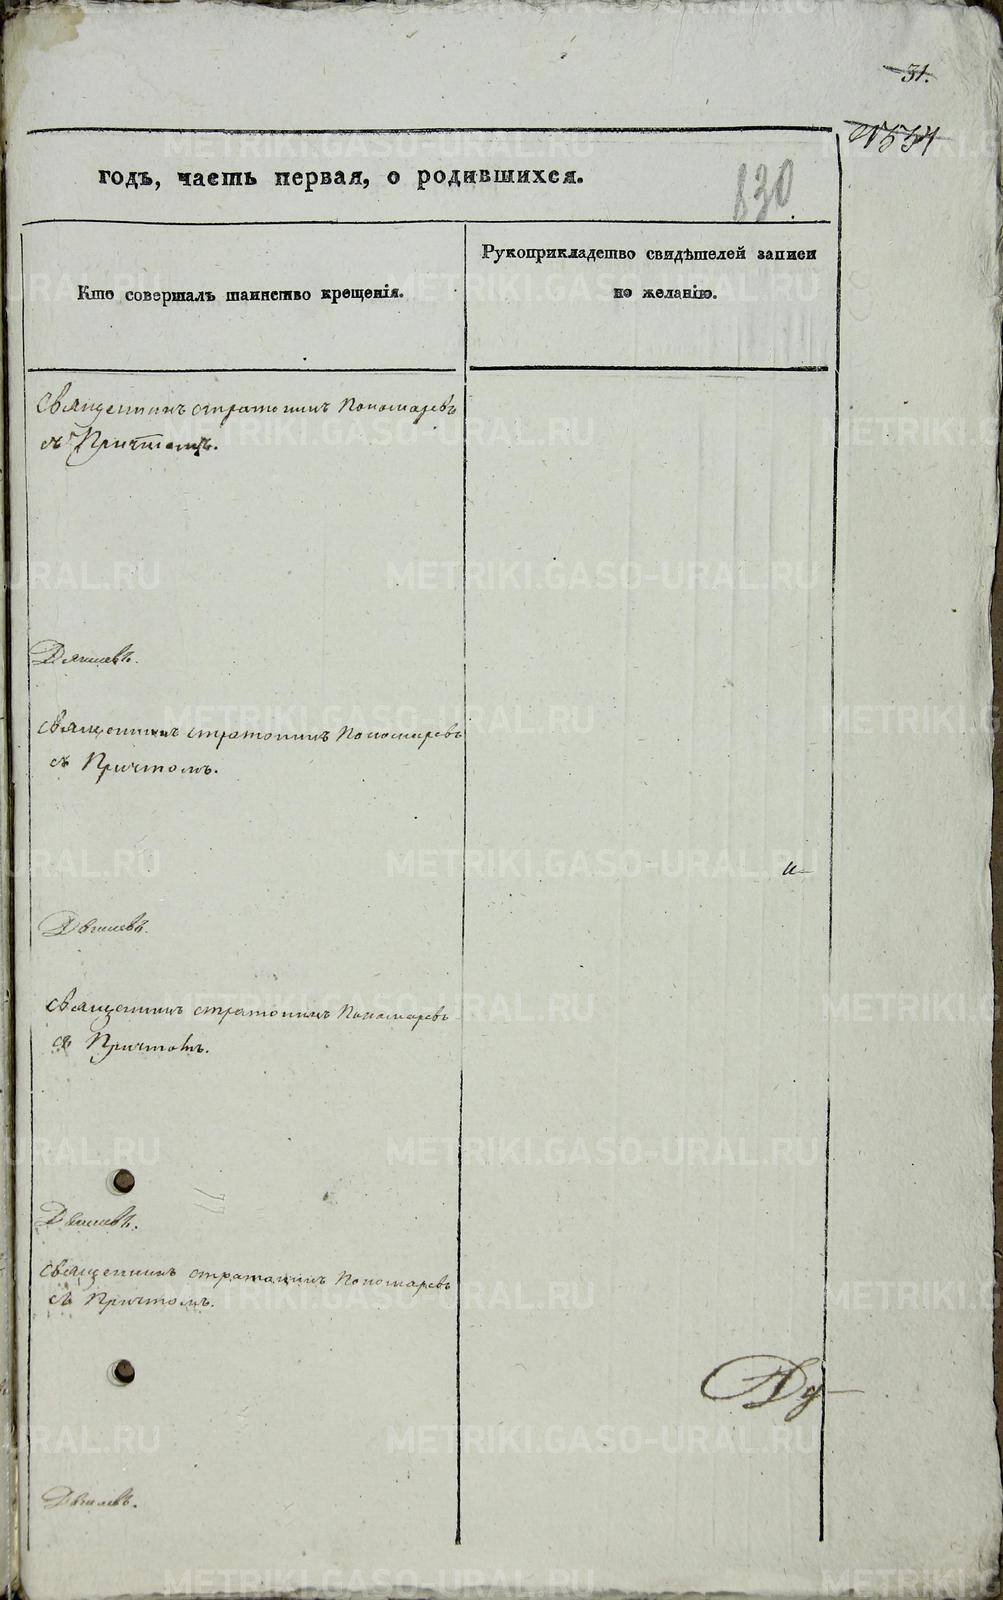 31.
№ 534
годъ, часть первая, о родившихся.
830
Кто совершалъ таинство крещенія.
Рукоприкладство свидѣтелей записи
по желанію.
Священникъ Стратоникъ Пономаревъ
съ Причтомъ.
Священникъ Стратоникъ Пономаревъ
съ Причтомъ.
Священникъ Стратоникъ Пономаревъ
съ Причтомъ.
Священникъ Стратоникъ Пономаревъ
съ Причтомъ.
METRIKI.GASO-URAL.RU